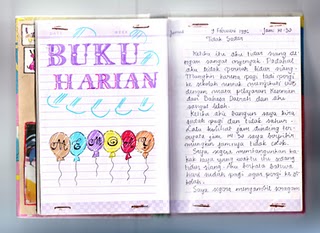 BUKU
HARIAN
MEMORY
Jumat 9 Februari 1996 Jam 14.30
Tidur Sadar
Ketika itu aku tidur siang di
ngan sangat nyenyak. Padahal
aku tidak pernah tidur siang.
Mungkin karena pagi tadi pergi
ke sekolah untuk mengikuti
dengan mata pelajaran Kesenian
dan Bahasa Daerah dan aku
sangat lelah.
Ketika aku bangun saya kira
sudah pagi dan tidak sahur.
Lalu kulihat jam dinding ter-
nyata jam 14.30 saya berpikir
mungkin jamnya tidak cocok.
Saya segera membangunkan ka-
kak saya yang waktu itu sedang
tidur siang. Aku berkata bahwa
hari sudah pagi agar pergi ke
sekolah.
Saya segera mengambil seragam